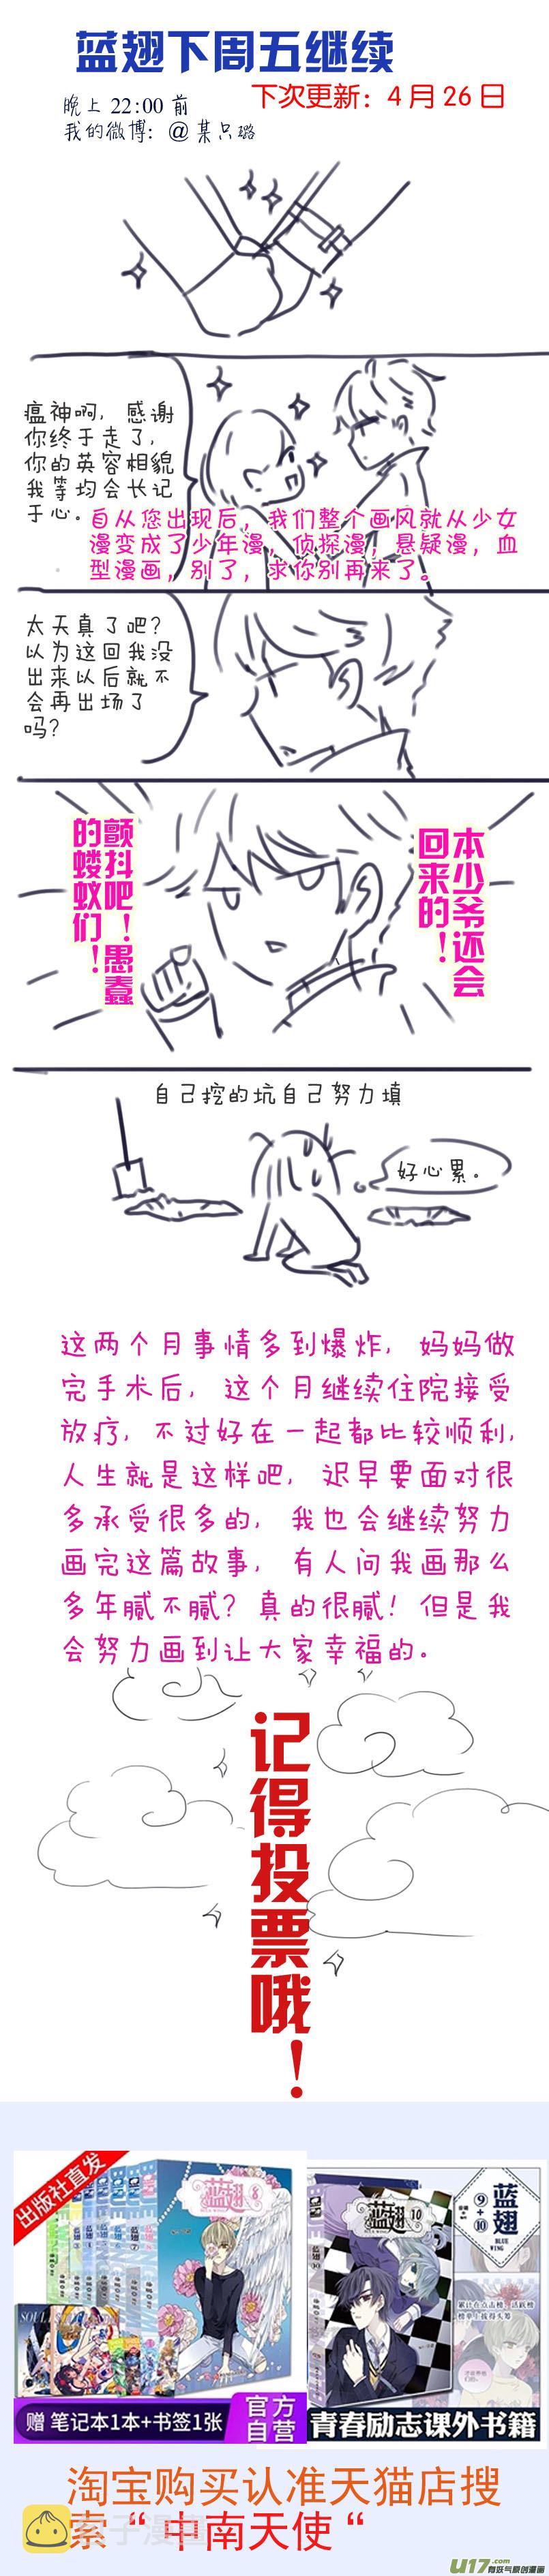 蓝翅下周五继续
下次更新：4月26日
晚上 22:00 前
我的微博：@某只璐
瘟神啊，感谢
你终于走了，
你的英容相貌
我等均会长记
于心。
自从您出现后，我们整个画风就从少女
漫变成了少年漫，侦探漫，悬疑漫，血
型漫画，别了，求你别再来了。
太天真了吧？
以为这回我没
出来以后就不
会再出场了
吗？
本少爷还会
回来的！
颤抖吧！愚蠢
的蝼蚁们！
自己挖的坑自己努力填
好心累。
这两个月事情多到爆炸，妈妈做
完手术后，这个月继续住院接受
放疗，不过好在一起都比较顺利，
人生就是这样吧，迟早要面对很
多承受很多的，我也会继续努力
画完这篇故事，有人问我画那么
多年腻不腻？真的很腻！但是我
会努力画到让大家幸福的。
记得投票哦！
出版社直发
蓝翅 8
赠 笔记本1本+书签1张
官方
自营
蓝翅 10
⑨+⑩
蓝翅
BLUE
WING
累计在点击榜、活跃榜
榜单上拔得头筹
青春励志课外书籍
淘宝购买认准天猫店搜
索“中南天使“
包子漫畫
U17.com
有妖气原创漫画